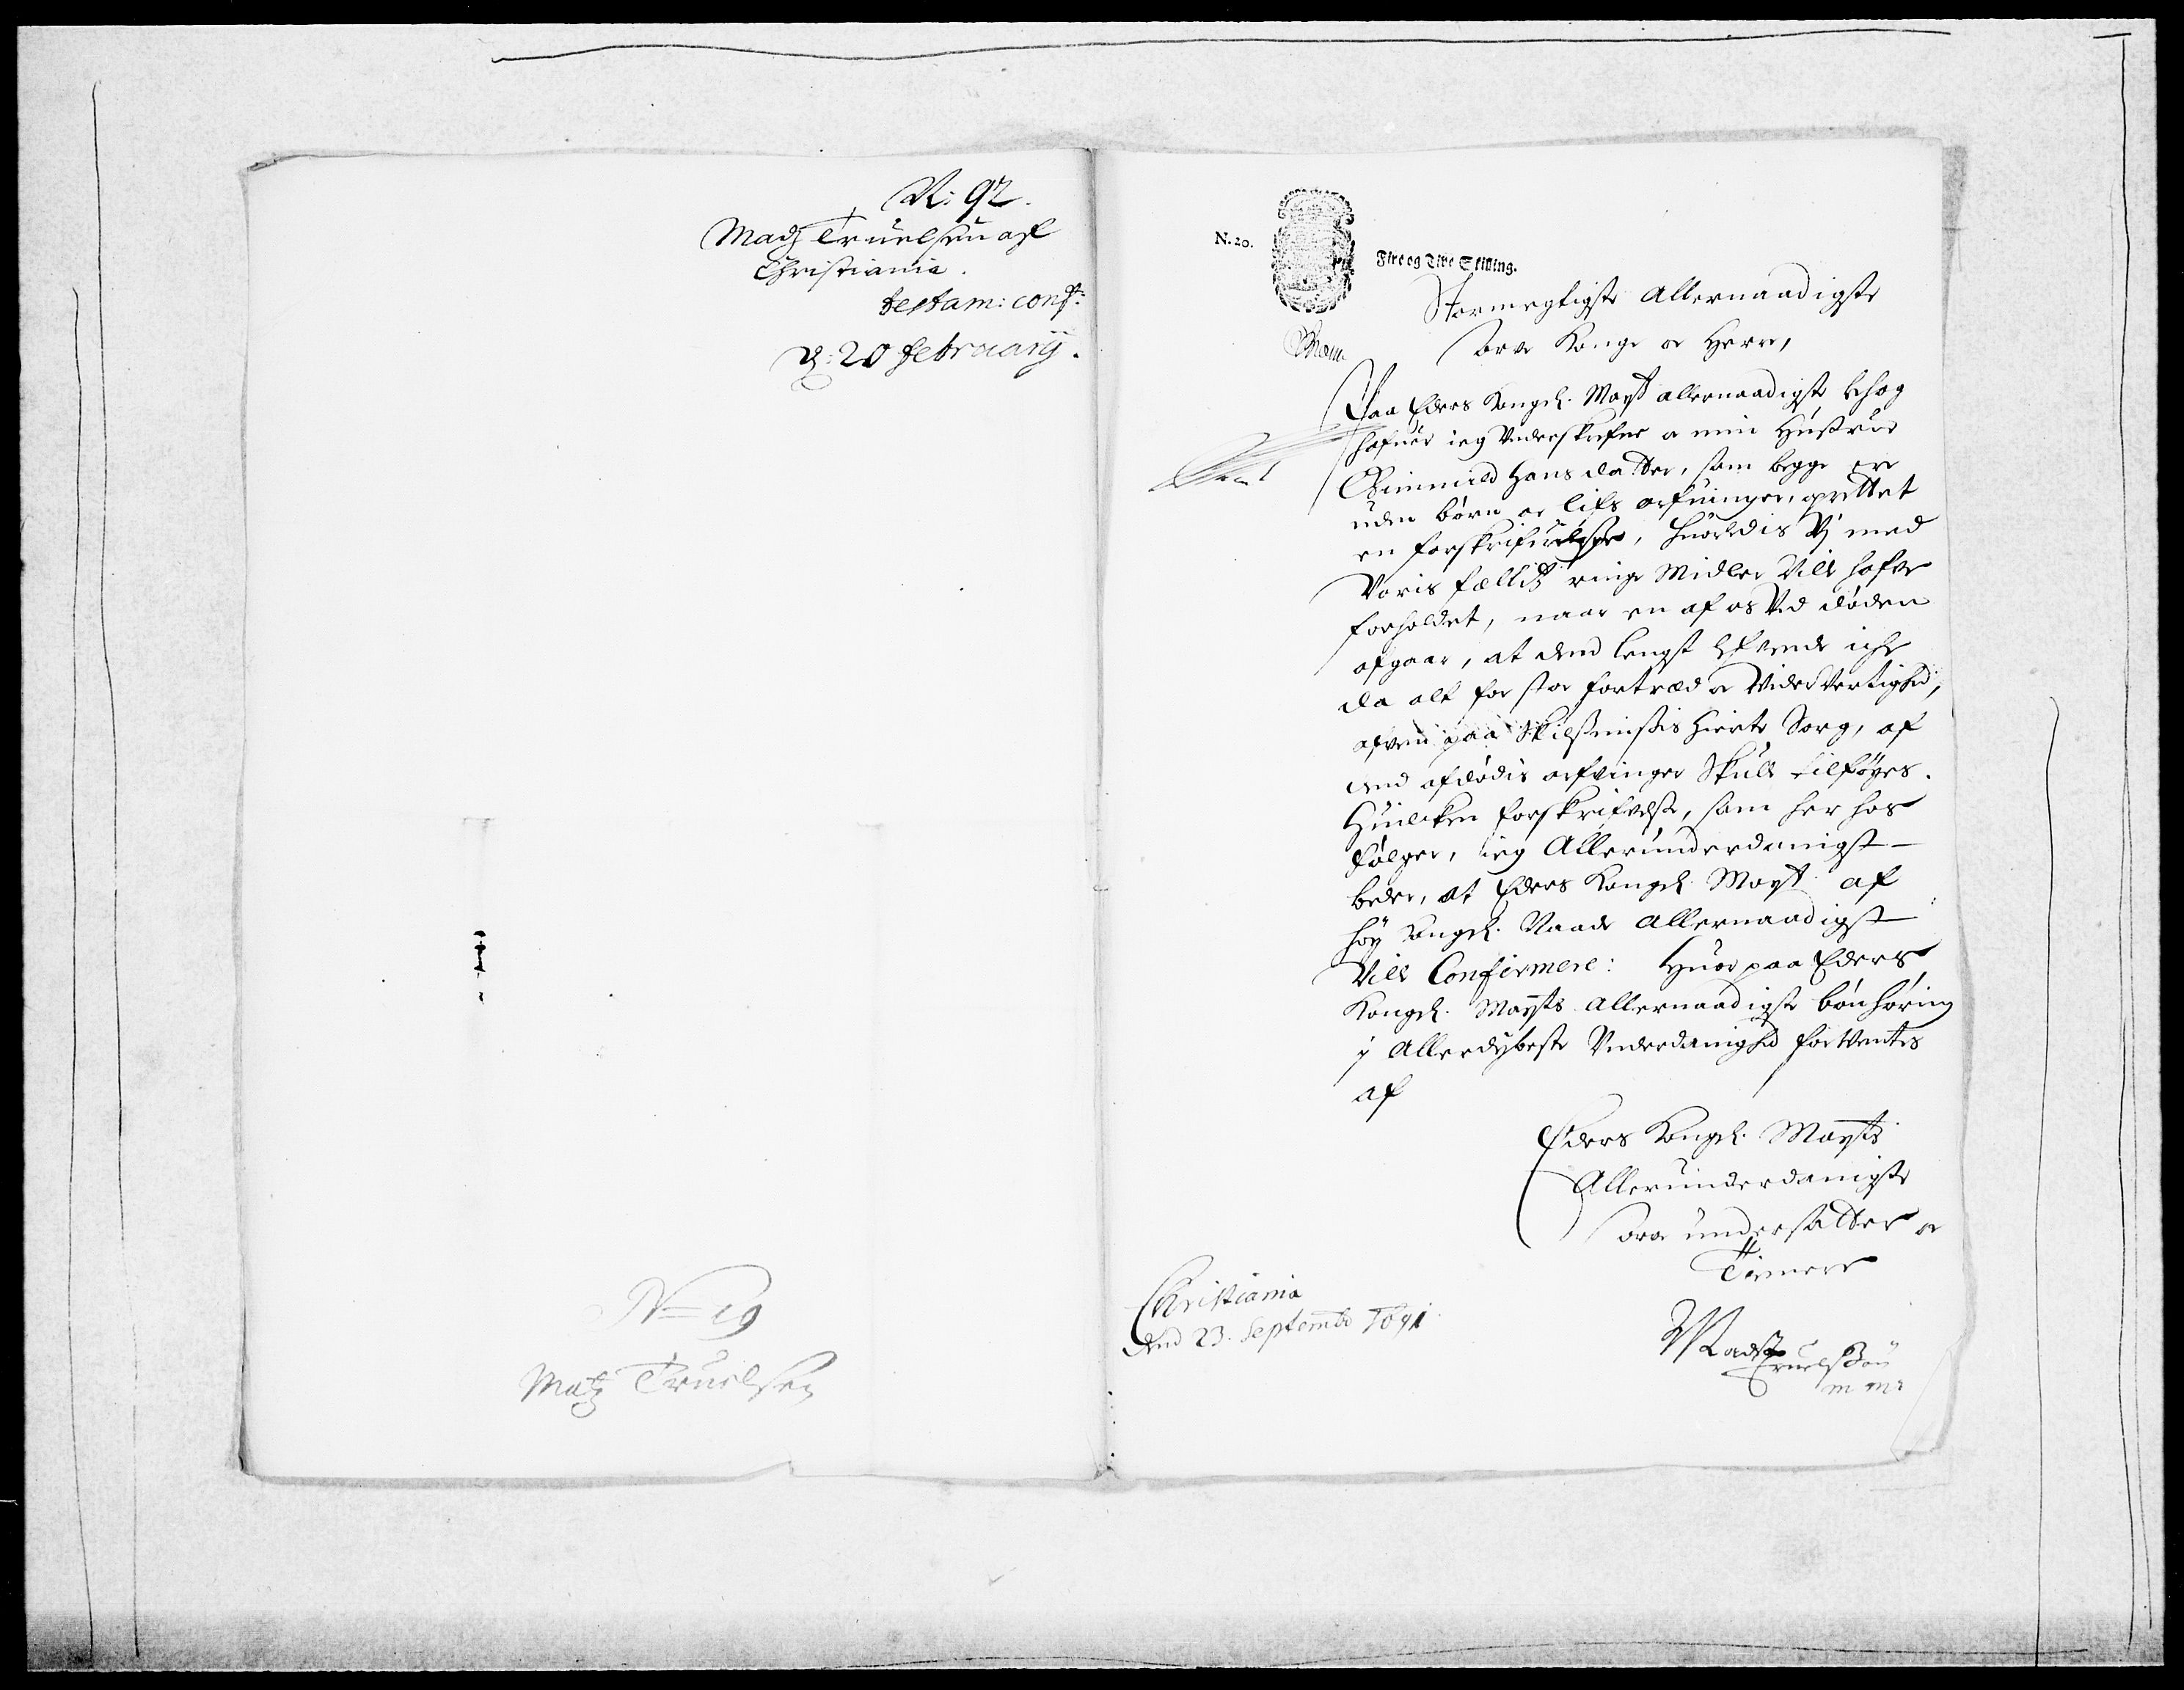 N: 92.
Madz Truelsen af
Christiania.
testam: conf:
d: 20 februarij.
No 19
Matz Truelsen
N. 20.
Fire og Tive Skilling.
Stormegtigste Allernaadigste
Arve Konge oc Herre,
Paa Eders Kongl. Mayt allernaadigste behag
hafuer ieg Underskrefne oc min Hustrue
Gunnild Hans datter, som begge ere
uden børn oc lifs arfuinger, oprettet
en forskrifuelse, huorledis Vj med
Voris fællitz ringe Midler Ville hafve
forholdet, naar en af os Ved døden
afgaar, at dend lengst lefvende iche
da alt for stor fortræd oc Widervertighed,
ofven paa Skilsmissis Hierte Sorg, af
dend afdødis arfvinger Skulle tilføyes.
Huilcken forskrifvelse, som her hos
følger, ieg Allerunderdanigst
beder, at Eders Kongl. Mayt af
høy Kongl. Naade Allernaadigst
Ville Confirmere: Huor paa Eders
Kongl. Mayts Allernaadigste bønhøring
j Allerdybeste Underdanighed forVentes
af
Eders Kongl. Mayts
Allerunderdanigste
Arve undersatter oc
Tienere
Christiania
dend 23. Septembr 1691
Mads
Truelssøn
m m